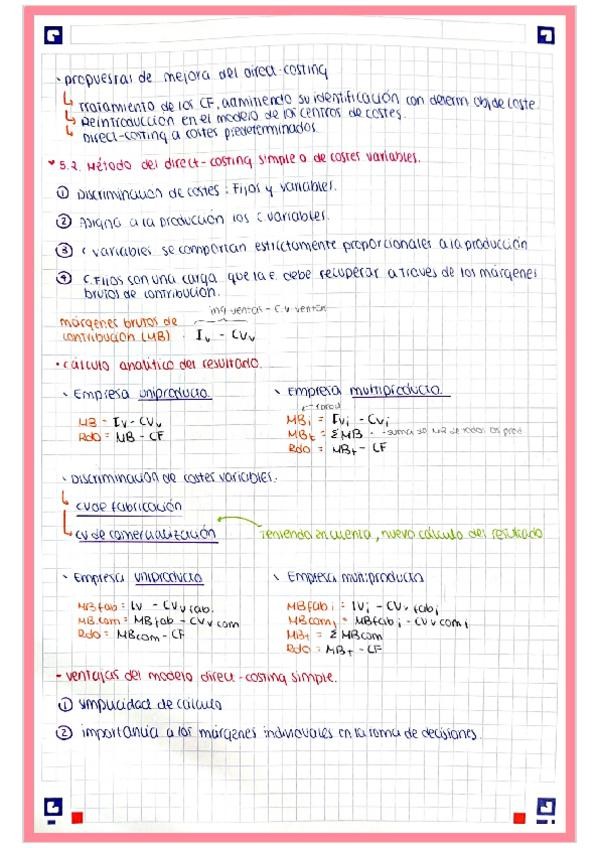 · propuestas de mejora del direct-costing
↳ Tratamiento de los CF, admitiendo su identificación con determ obj de coste.
↳ Reintroducción en el modelo de los centros de costes.
↳ Direct-costing a costes predeterminados.
5.2. Método del direct-costing simple o de costes variables.
① Discriminación de costes: Fijos y variables.
② Asigna a la producción los C variables.
③ C variables se comportan estrictamente proporcionales a la producción
④ C. Fijos son una carga que la e. debe recuperar a través de los márgenes
brutos de contribución.
ing ventas - C.v ventas
márgenes brutos de
contribución (MB) . Iv - CVv
· cálculo analítico del resultado.
· Empresa uniproducto
MB = Iv - CVv
Rdo = MB - CF
· Empresa multiproducto.
MBi = Ivi - CVi
MBt = ΣMB → suma de MB de todos los prod
Rdo = MBt - CF
· Discriminación de costes variables.
↳ CV de fabricación
↳ CV de comercialización
Teniendo en cuenta, nuevo cálculo del resultado
· Empresa uniproducto
MBfab = Iv - CVv fab.
MBcom = MBfab - CVv com
Rdo = MBcom - CF
· Empresa multiproducto
MBfabi = Ivi - CVv fabi
MBcomi = MBfabi - CVv comi
MBt = ΣMBcom
Rdo = MBt - CF
- ventajas del modelo direct-costing simple.
① simplicidad de cálculo
② importancia a los márgenes individuales en la toma de decisiones.